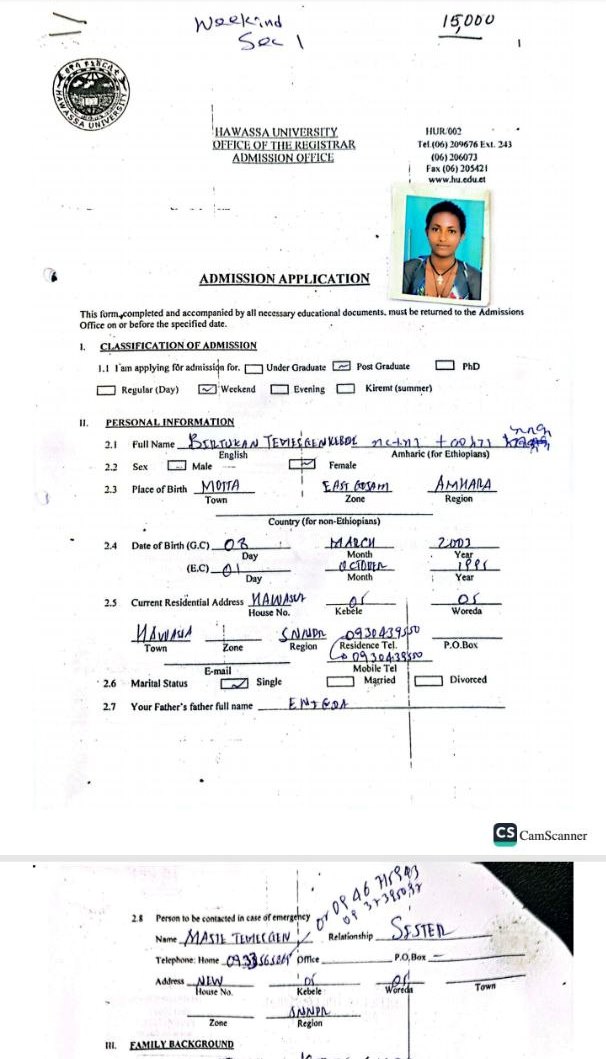 Weekind
Sec 1
15,000
HAWASSA UNIVERSITY
HAWASSA UNIVERSITY
OFFICE OF THE REGISTRAR
ADMISSION OFFICE
HUR/002
Tel.(06) 209676 Ext. 243
(06) 206073
Fax (06) 205421
www.hu.edu.et
ADMISSION APPLICATION
This form,completed and accompanied by all necessary educational documents, must be returned to the Admissions
Office on or before the specified date.
I. CLASSIFICATION OF ADMISSION
1.1 I am applying for admission for. Under Graduate Post Graduate PhD
Regular (Day) Weekend Evening Kiremt (summer)
II. PERSONAL INFORMATION
2.1 Full Name BIRTUKAN TEMESGEN
English Amharic (for Ethiopians)
2.2 Sex Male Female
2.3 Place of Birth MOTTA EAST GOJAM AMHARA
Town Zone Region
Country (for non-Ethiopians)
2.4 Date of Birth (G.C) 03 MARCH 2003
Day Month Year
(E.C) 01 OCTOBER
Day Month Year
2.5 Current Residential Address HAWASA 05 05
House No. Kebele Woreda
HAWASA SNNPR
Town Zone Region Residence Tel. P.O.Box
E-mail Mobile Tel
2.6 Marital Status Single Married Divorced
2.7 Your Father's father full name
CS CamScanner
2.8 Person to be contacted in case of emergency
Name TEMESGEN Relationship SESTER
Telephone: Home Office P.O.Box
Address NEW 05 05
House No. Kebele Woreda Town
SNNPR
Zone Region
III. FAMILY BACKGROUND